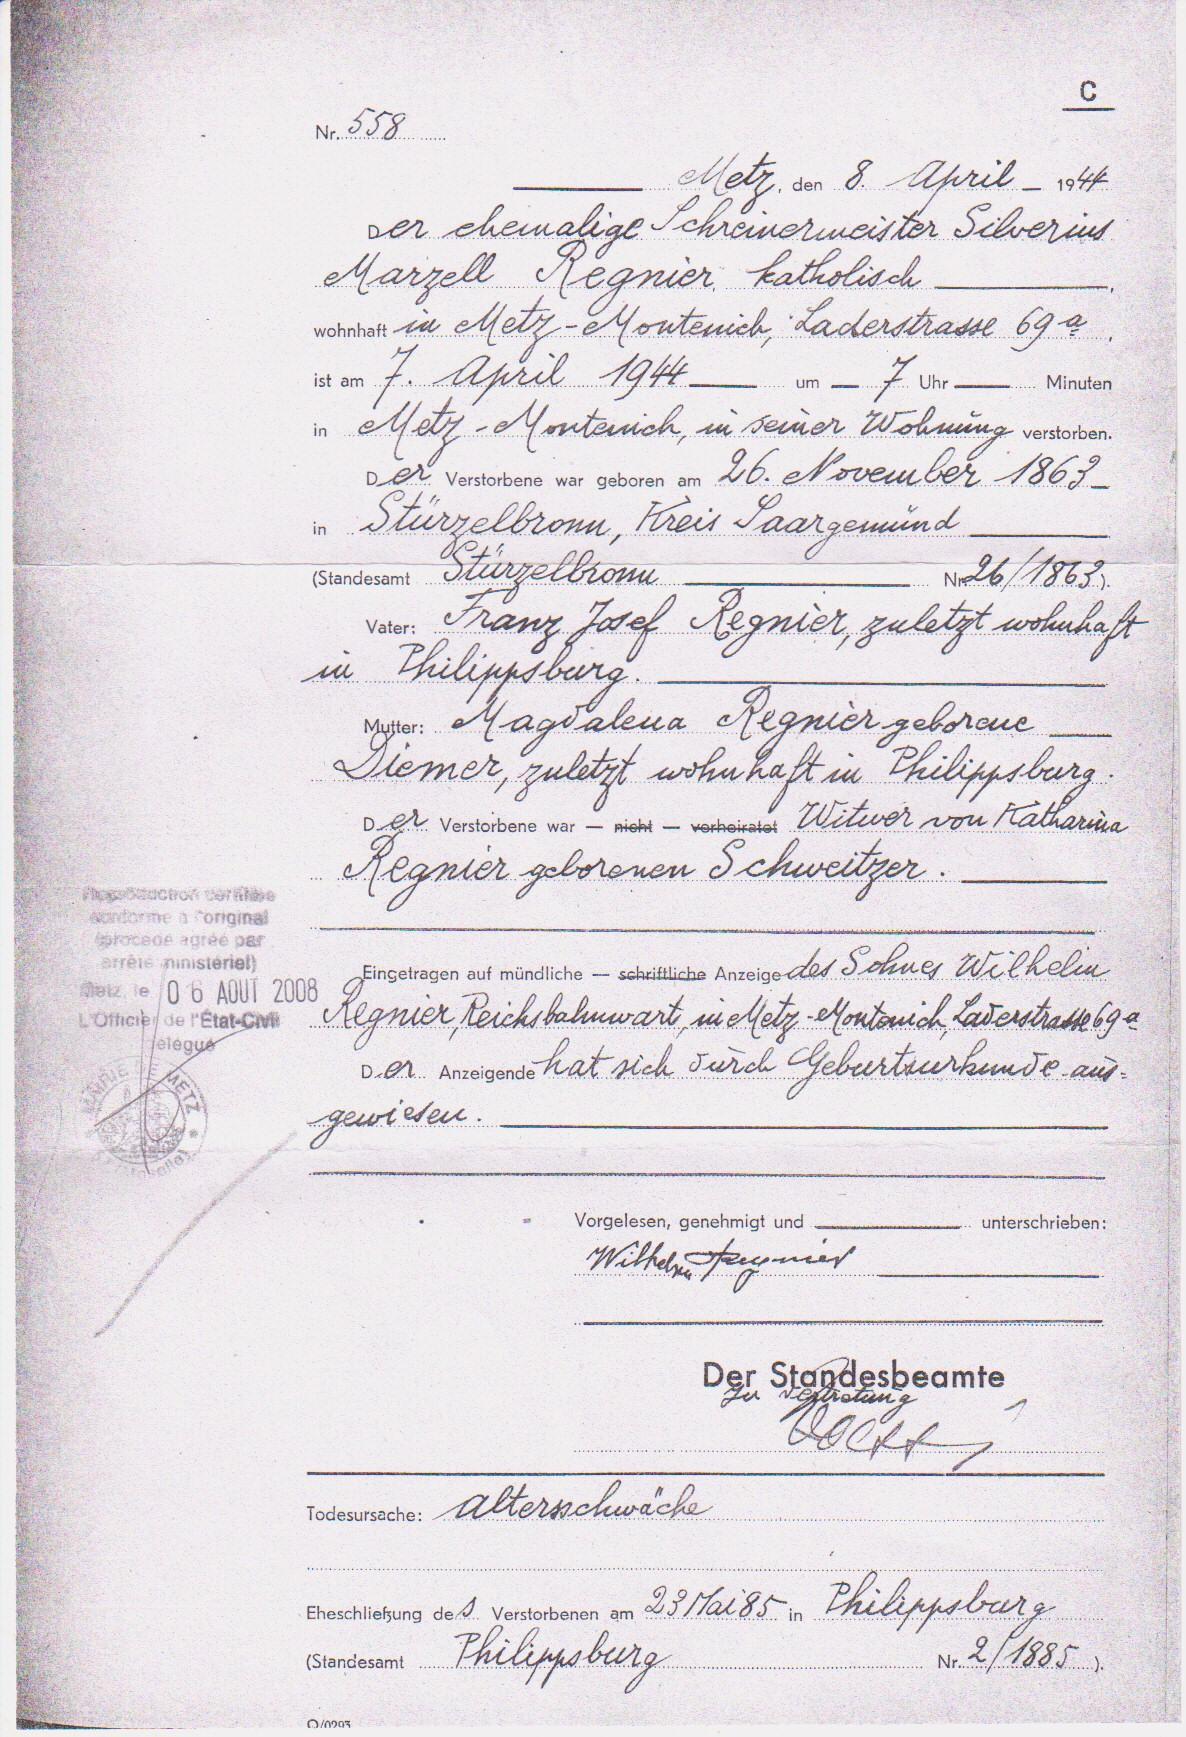 C
Nr. 558
Metz, den 8. April 1944
Der ehemalige Schreinermeister Silverius
Marzell Regnier, katholisch,
wohnhaft in Metz-Montenich, Laderstrasse 69 a,
ist am 7. April 1944 um 7 Uhr Minuten
in Metz-Montenich, in seiner Wohnung verstorben.
Der Verstorbene war geboren am 26. November 1863
in Stürzelbronn, Kreis Saargemünd
(Standesamt Stürzelbronn Nr. 26/1863).
Vater: Franz Josef Regnier, zuletzt wohnhaft
in Philippsburg.
Mutter: Magdalena Regnier geborene
Diemer, zuletzt wohnhaft in Philippsburg.
Der Verstorbene war — nicht — verheiratet Witwer von Katharina
Regnier geborenen Schweitzer.
Eingetragen auf mündliche — schriftliche Anzeige des Sohnes Wilhelm
Regnier, Reichsbahnwart, in Metz-Montenich, Laderstrasse 69 a
Der Anzeigende hat sich durch Geburtsurkunde aus-
gewiesen.
Reproduction certifiée
conforme à l'original
(procédé agréé par
arrêté ministériel)
Metz, le 06 AOUT 2008
L'Officier de l'État-Civil
délégué
MAIRIE DE METZ
Vorgelesen, genehmigt und unterschrieben:
Wilhelm Regnier
Der Standesbeamte
In Vertretung
Todesursache: Altersschwäche
Eheschließung des Verstorbenen am 23 Mai 85 in Philippsburg
(Standesamt Philippsburg Nr. 2/1885).
O/0293